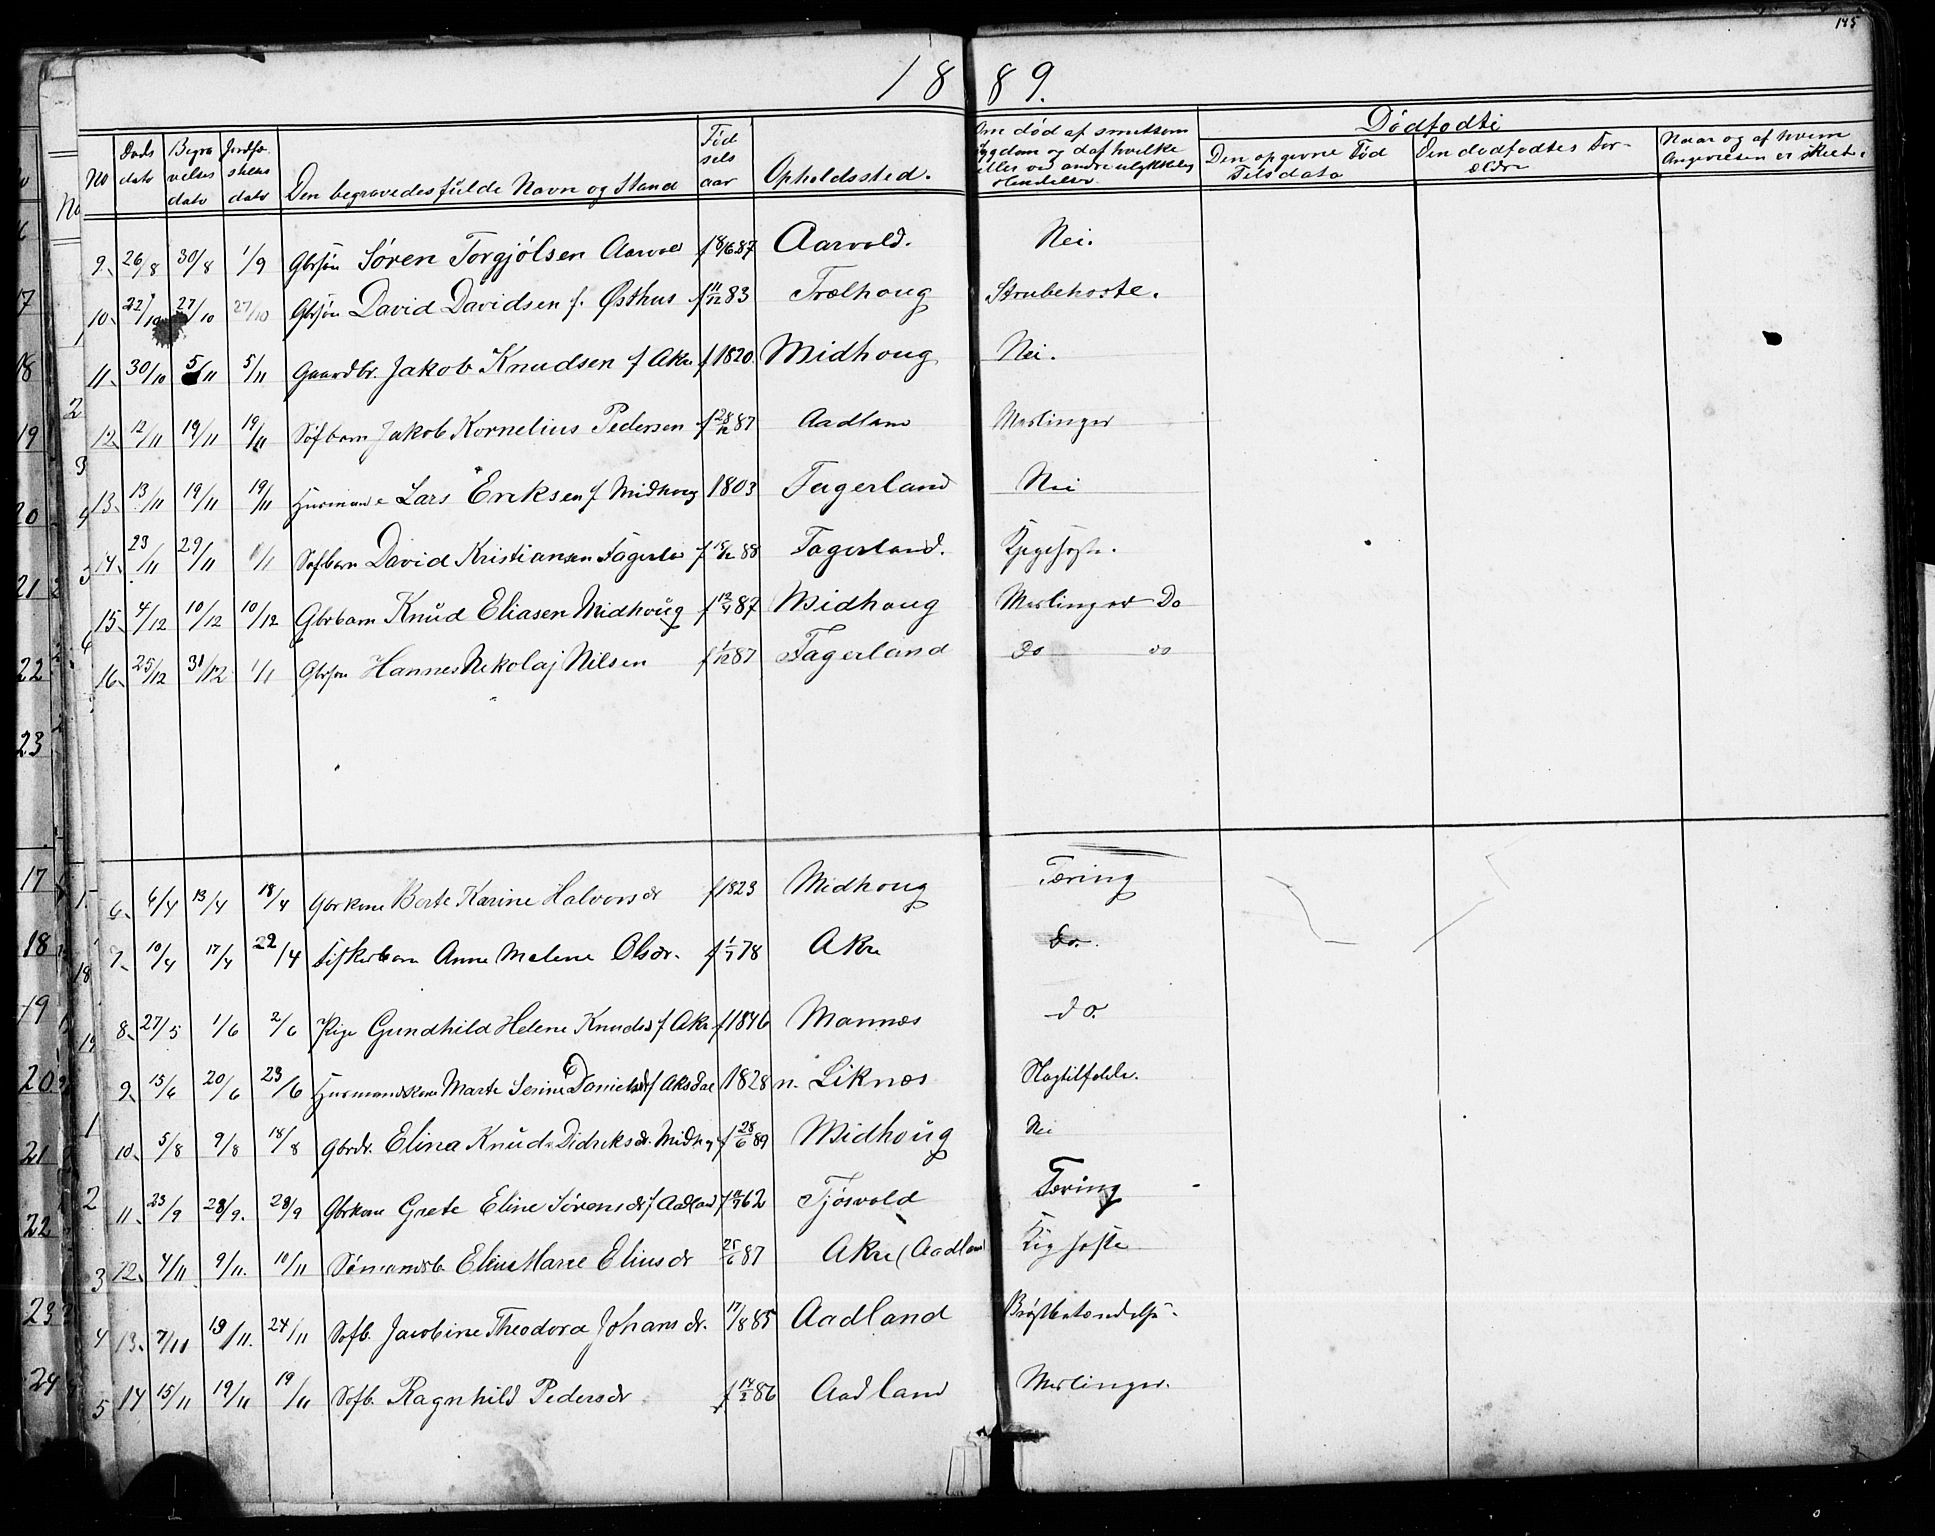 185
1889.
No Døds dato Begravelses dato Jordfæstelses dato Den begravedes fulde Navn og Stand Fødselsaar Opholdssted. Om død af smitsom Sygdom og daf hvilke eller ved andre ulykkelig Hendelser. Dødfødte
Den opgivne Fødselsdato Den dødfødtes Forældre Naar og af hvem Angivelsen er skeet.
9. 26/8 30/8 1/9 Gbrsøn Søren Torgjølsen Aarvold f 18/6 87 Aarvold. Nei.
10. 22/10 27/10 27/10 Gbrsøn David Davidsen f. Østhus f 11/12 83 Trælhoug Strubehoste.
11. 30/10 5/11 5/11 Gaardbr. Jakob Knudsen f Akre f 1820. Midhoug Nei.
12. 12/11 19/11 19/11 Søfbarn Jakob Kornelius Pedersen f 28/12 87 Aadland Meslinger
13. 13/11 19/11 19/11 Husmand Lars Eriksen f Midhoug 1803 Fagerland Nei
14. 23/11 29/11 1/1 Søfbarn David Kristiansen Fagerla f 15/12 88 Fagerland. Kighoste.
15. 4/12 10/12 10/12 Gbrbarn Knud Eliasen Midhoug f 13/9 87 Midhoug Meslinger Do
16. 25/12 31/12 1/1 Gbrsøn Hannes Nikolaj Nilsen f 1/12 87 Fagerland do do
6. 6/4 13/4 18/4 Gbrkone Berte Karine Halvorsdr f 1823 Midhoug Tæring
7. 10/4 17/4 22/4 Fiskerbarn Anne Malene Olsdr. f 1/7 78 Akre Do.
8. 27/5 1/6 2/6 Pige Gundhild Helene Knudsd f Akre f 1846 Mannæs do.
9. 15/6 20/6 23/6 Husmandskone Marte Serine Danielsdr f Aksdal 1828 n. Liknæs Slagtilfelde.
10. 5/8 9/8 18/8 Gbrdr. Elina Knud Didriksdr. Midhg f 28/6 89 Midhoug Nei
11. 23/9 28/9. 28/9 Gbrkone Grete Eline Sørensdr f Aadland 62 Tjøsvold Tæring
12. 4/11 9/11. 10/11 Sømandsb. Eline Marie Eliasdr 25/6 87 Akre (Aadland Kighoste
13. 7/11 13/11. 24/11 Søfb. Jacobine Theodora Johansdr. 17/8 85 Aadland Brystbetændelse.
14 15/11 19/11 19/11 Søfb. Ragnhild Pedersdr f 14/2 86 Aadland Meslinger.